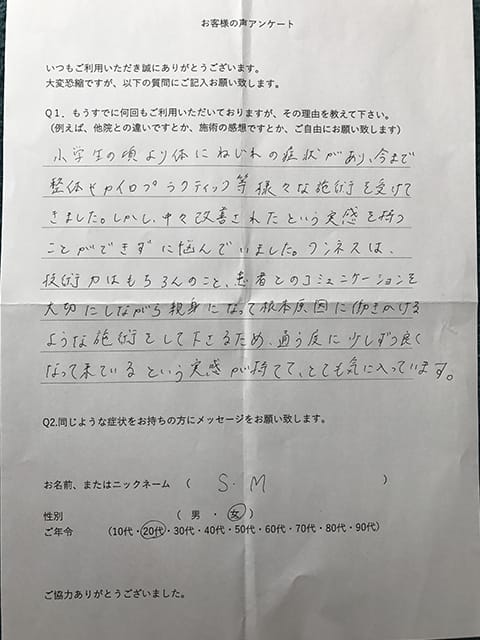 お客様の声アンケート
いつもご利用いただき誠にありがとうございます。
大変恐縮ですが、以下の質問にご記入お願い致します。
Q1. もうすでに何回もご利用いただいておりますが、その理由を教えて下さい。
(例えば、他院との違いですとか、施術の感想ですとか、ご自由にお願い致します)
小学生の頃より体にねじれの症状があり、今まで
整体やカイロプラクティック等様々な施術を受けて
きました。しかし、中々改善されたという実感を持つ
ことができずに悩んでいました。ワンネスは、
技術力はもちろんのこと、患者とのコミュニケーションを
大切にしながら親身になって根本原因に働きかける
ような施術をして下さるため、通う度に少しずつ良く
なって来ているという実感が持てて、とても気に入っています。
Q2.同じような症状をお持ちの方にメッセージをお願い致します。
お名前、またはニックネーム ( S.M )
性別 ( 男 ・ 女 )
ご年令 (10代・20代・30代・40代・50代・60代・70代・80代・90代)
ご協力ありがとうございました。